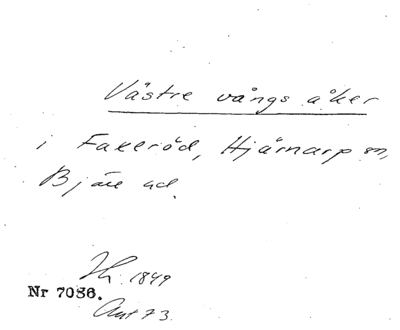 Västre vångs åker
i Faxeröd, Hjärnarp sn,
Bjäre hd.
1849
Nr 7086.
Avt 73.